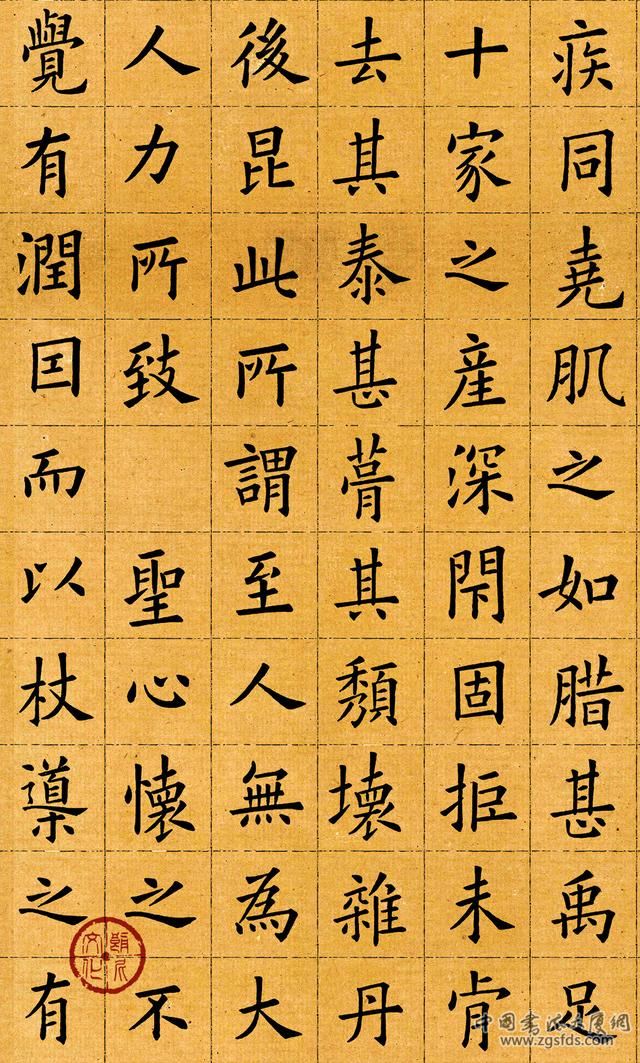 疾同堯肌之如腊甚禹足
十家之産深閇固拒未肯
去其泰甚葺其頽壞雜丹
後昆此所謂至人無為大
人力所致 聖心懷之不
覺有潤囙而以杖導之有
www.zgsfds.com